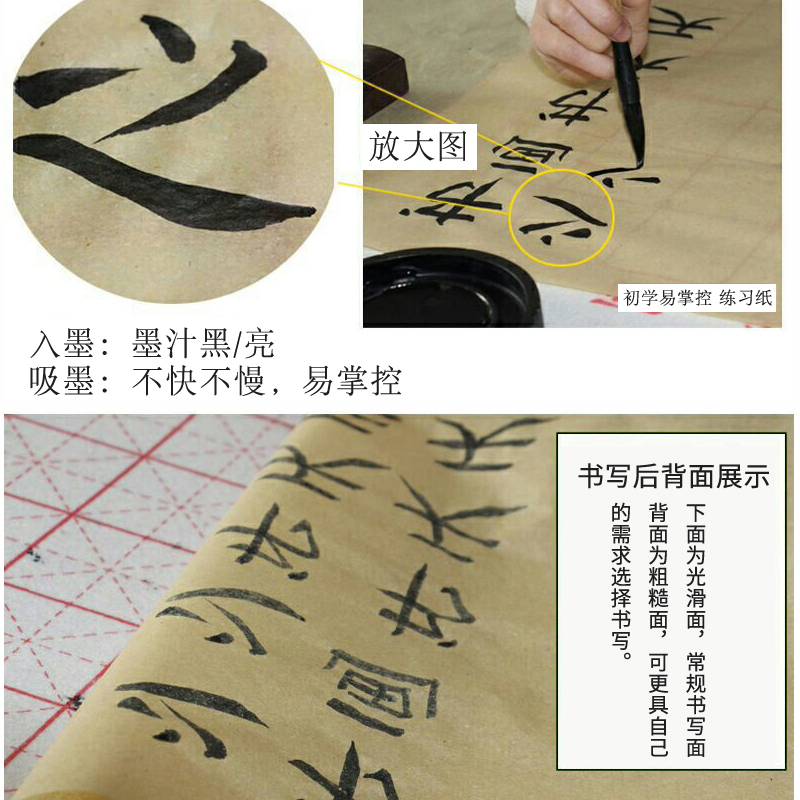 放大图
初学易掌控 练习纸
入墨：墨汁黑/亮
吸墨：不快不慢，易掌控
书写后背面展示
下面为光滑面，常规书写面
背面为粗糙面，可更具自己
的需求选择书写。